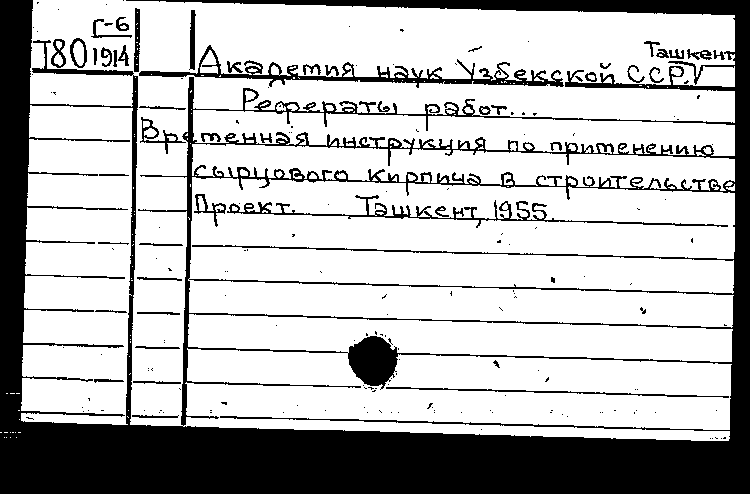 Г-6
Т80 1914
Ташкент
Академия наук Узбекской ССР.
Рефераты работ...
Временная инструкция по применению
сырцового кирпича в строительстве
Проект. Ташкент, 1955.